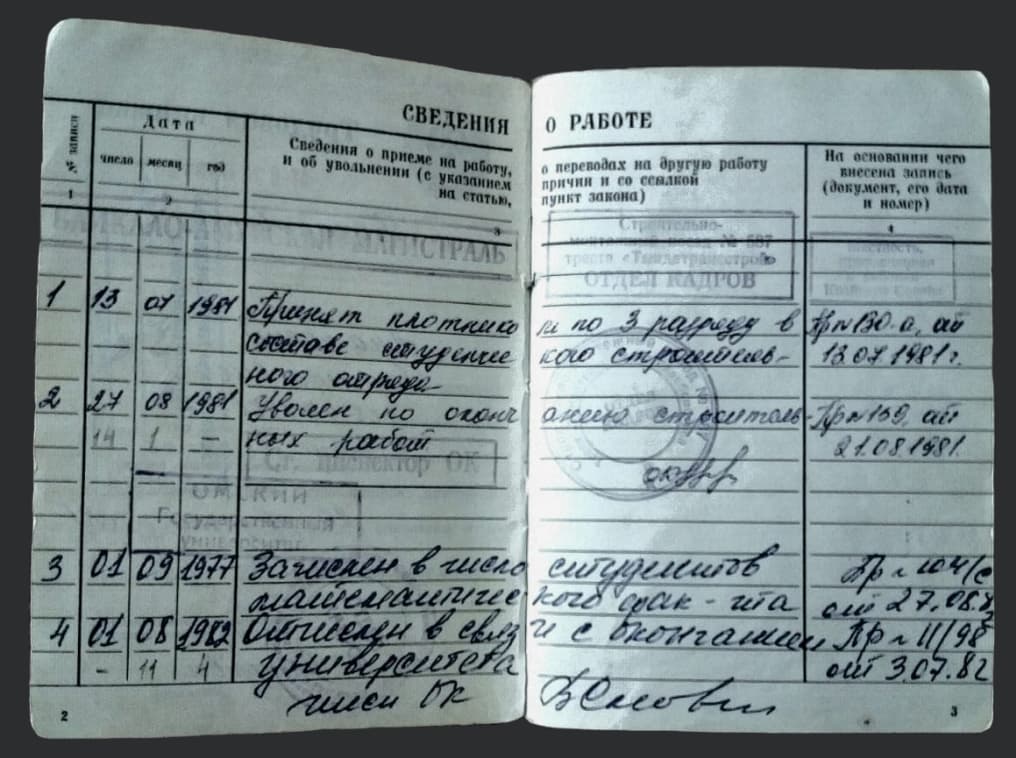 СВЕДЕНИЯ О РАБОТЕ
№ записи
Дата
число месяц год
Сведения о приеме на работу, о переводах на другую работу
и об увольнении (с указанием причин и со ссылкой
на статью, пункт закона)
На основании чего
внесена запись
(документ, его дата
и номер)
1 2 3 4
БАЙКАЛО-АМУРСКАЯ МАГИСТРАЛЬ
Строительно-
монтажный поезд № 687
треста «Тындатрансстрой»
ОТДЕЛ КАДРОВ
1 13 07 1981 Принят плотником по 3 разряду в Пр № 130-а, от
составе студенческого строитель- 13.07.1981 г.
ного отряда
2 27 08 1981 Уволен по окончанию строитель- Пр № 159, от
14 1 – ных работ 21.08.1981.
Ст. инспектор ОК
ОМСКИЙ
Государственный
университет
3 01 09 1977 Зачислен в число студентов Пр № 104/с
математического фак-та от 27.08.
4 01 08 1982 Отчислен в связи с окончанием Пр № 11/98
– 11 4 университета от 3.07.82
ОК
2
3